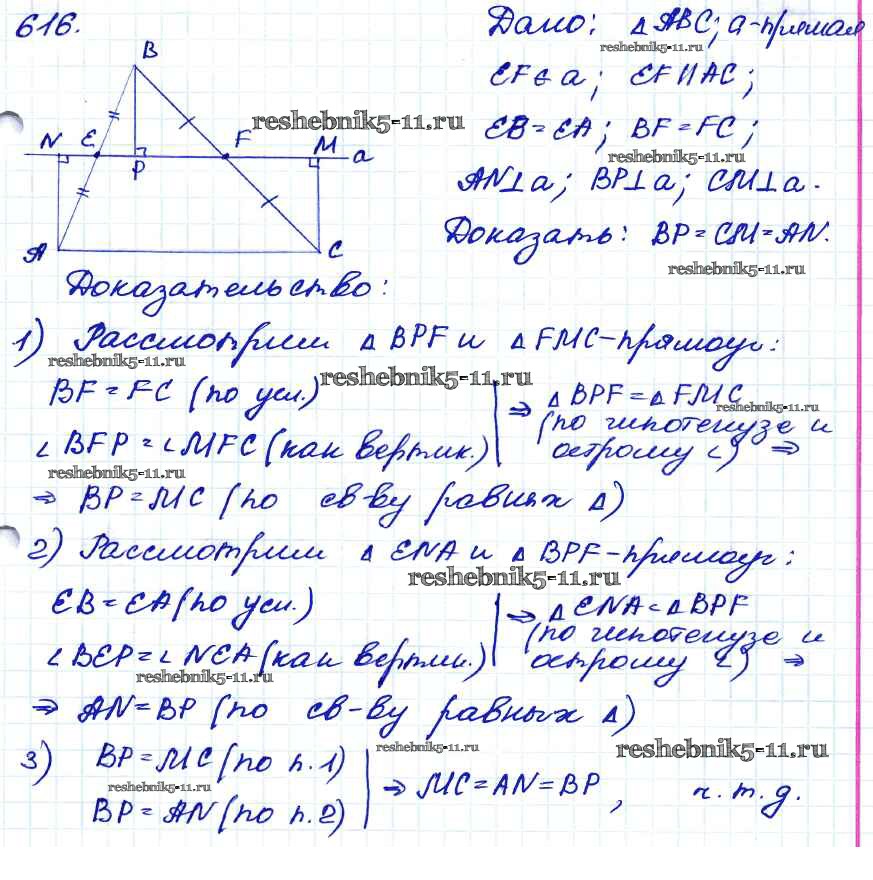 616.
Дано: △ ABC; a-прямая
reshebnik5-11.ru
EF∈a; EF∥AC;
EB=EA; BF=FC;
reshebnik5-11.ru
AN⊥a; BP⊥a; CM⊥a.
Доказать: BP=CM=AN.
reshebnik5-11.ru
B
reshebnik5-11.ru
N E P F M a
A C
Доказательство:
1) Рассмотрим △ BPF и △ FMC-прямоуг:
reshebnik5-11.ru
reshebnik5-11.ru
BF=FC (по усл.)
∠ BFP=∠MFC (как вертик.)
⇒ △ BPF=△FMC
reshebnik5-11.ru
(по гипотенузе и
острому ∠) ⇒
reshebnik5-11.ru
⇒ BP=MC (по св-ву равных △)
2) Рассмотрим △ ENA и △ BPF-прямоуг:
reshebnik5-11.ru
EB=EA (по усл.)
∠ BEP=∠NEA (как вертик.)
⇒ △ENA=△BPF
(по гипотенузе и
острому ∠) ⇒
reshebnik5-11.ru
⇒ AN=BP (по св-ву равных △)
3) BP=MC (по п.1)
reshebnik5-11.ru
reshebnik5-11.ru
reshebnik5-11.ru
BP=AN (по п.2)
⇒ MC=AN=BP, ч.т.д.